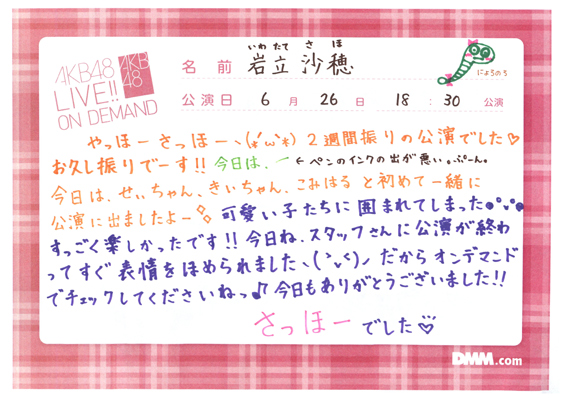 AKB48
LIVE!!
ON DEMAND
AKB
48
いわ たて さ ほ
名 前 岩立 沙穂
にょろのろ
公演日 6 月 26 日 18 : 30 公演
やっほー さっほー、(*'ω'*) 2週間振りの公演でした♡
お久し振りでーす!! 今日は、一 ←ペンのインクの出が悪い。ぷーん。
今日は、せぃちゃん、きぃちゃん、こみはる と初めて一緒に
公演に出ましたよー 可愛い子たちに囲まれてしまった
すっごく楽しかったです!! 今日ね、スタッフさんに公演が終わ
ってすぐ表情をほめられました、(`ᵕ´)ノ だからオンデマンド
でチェックしてくださいねっ♪ 今日もありがとうございました!!
さっほー でした♡
DMM.com